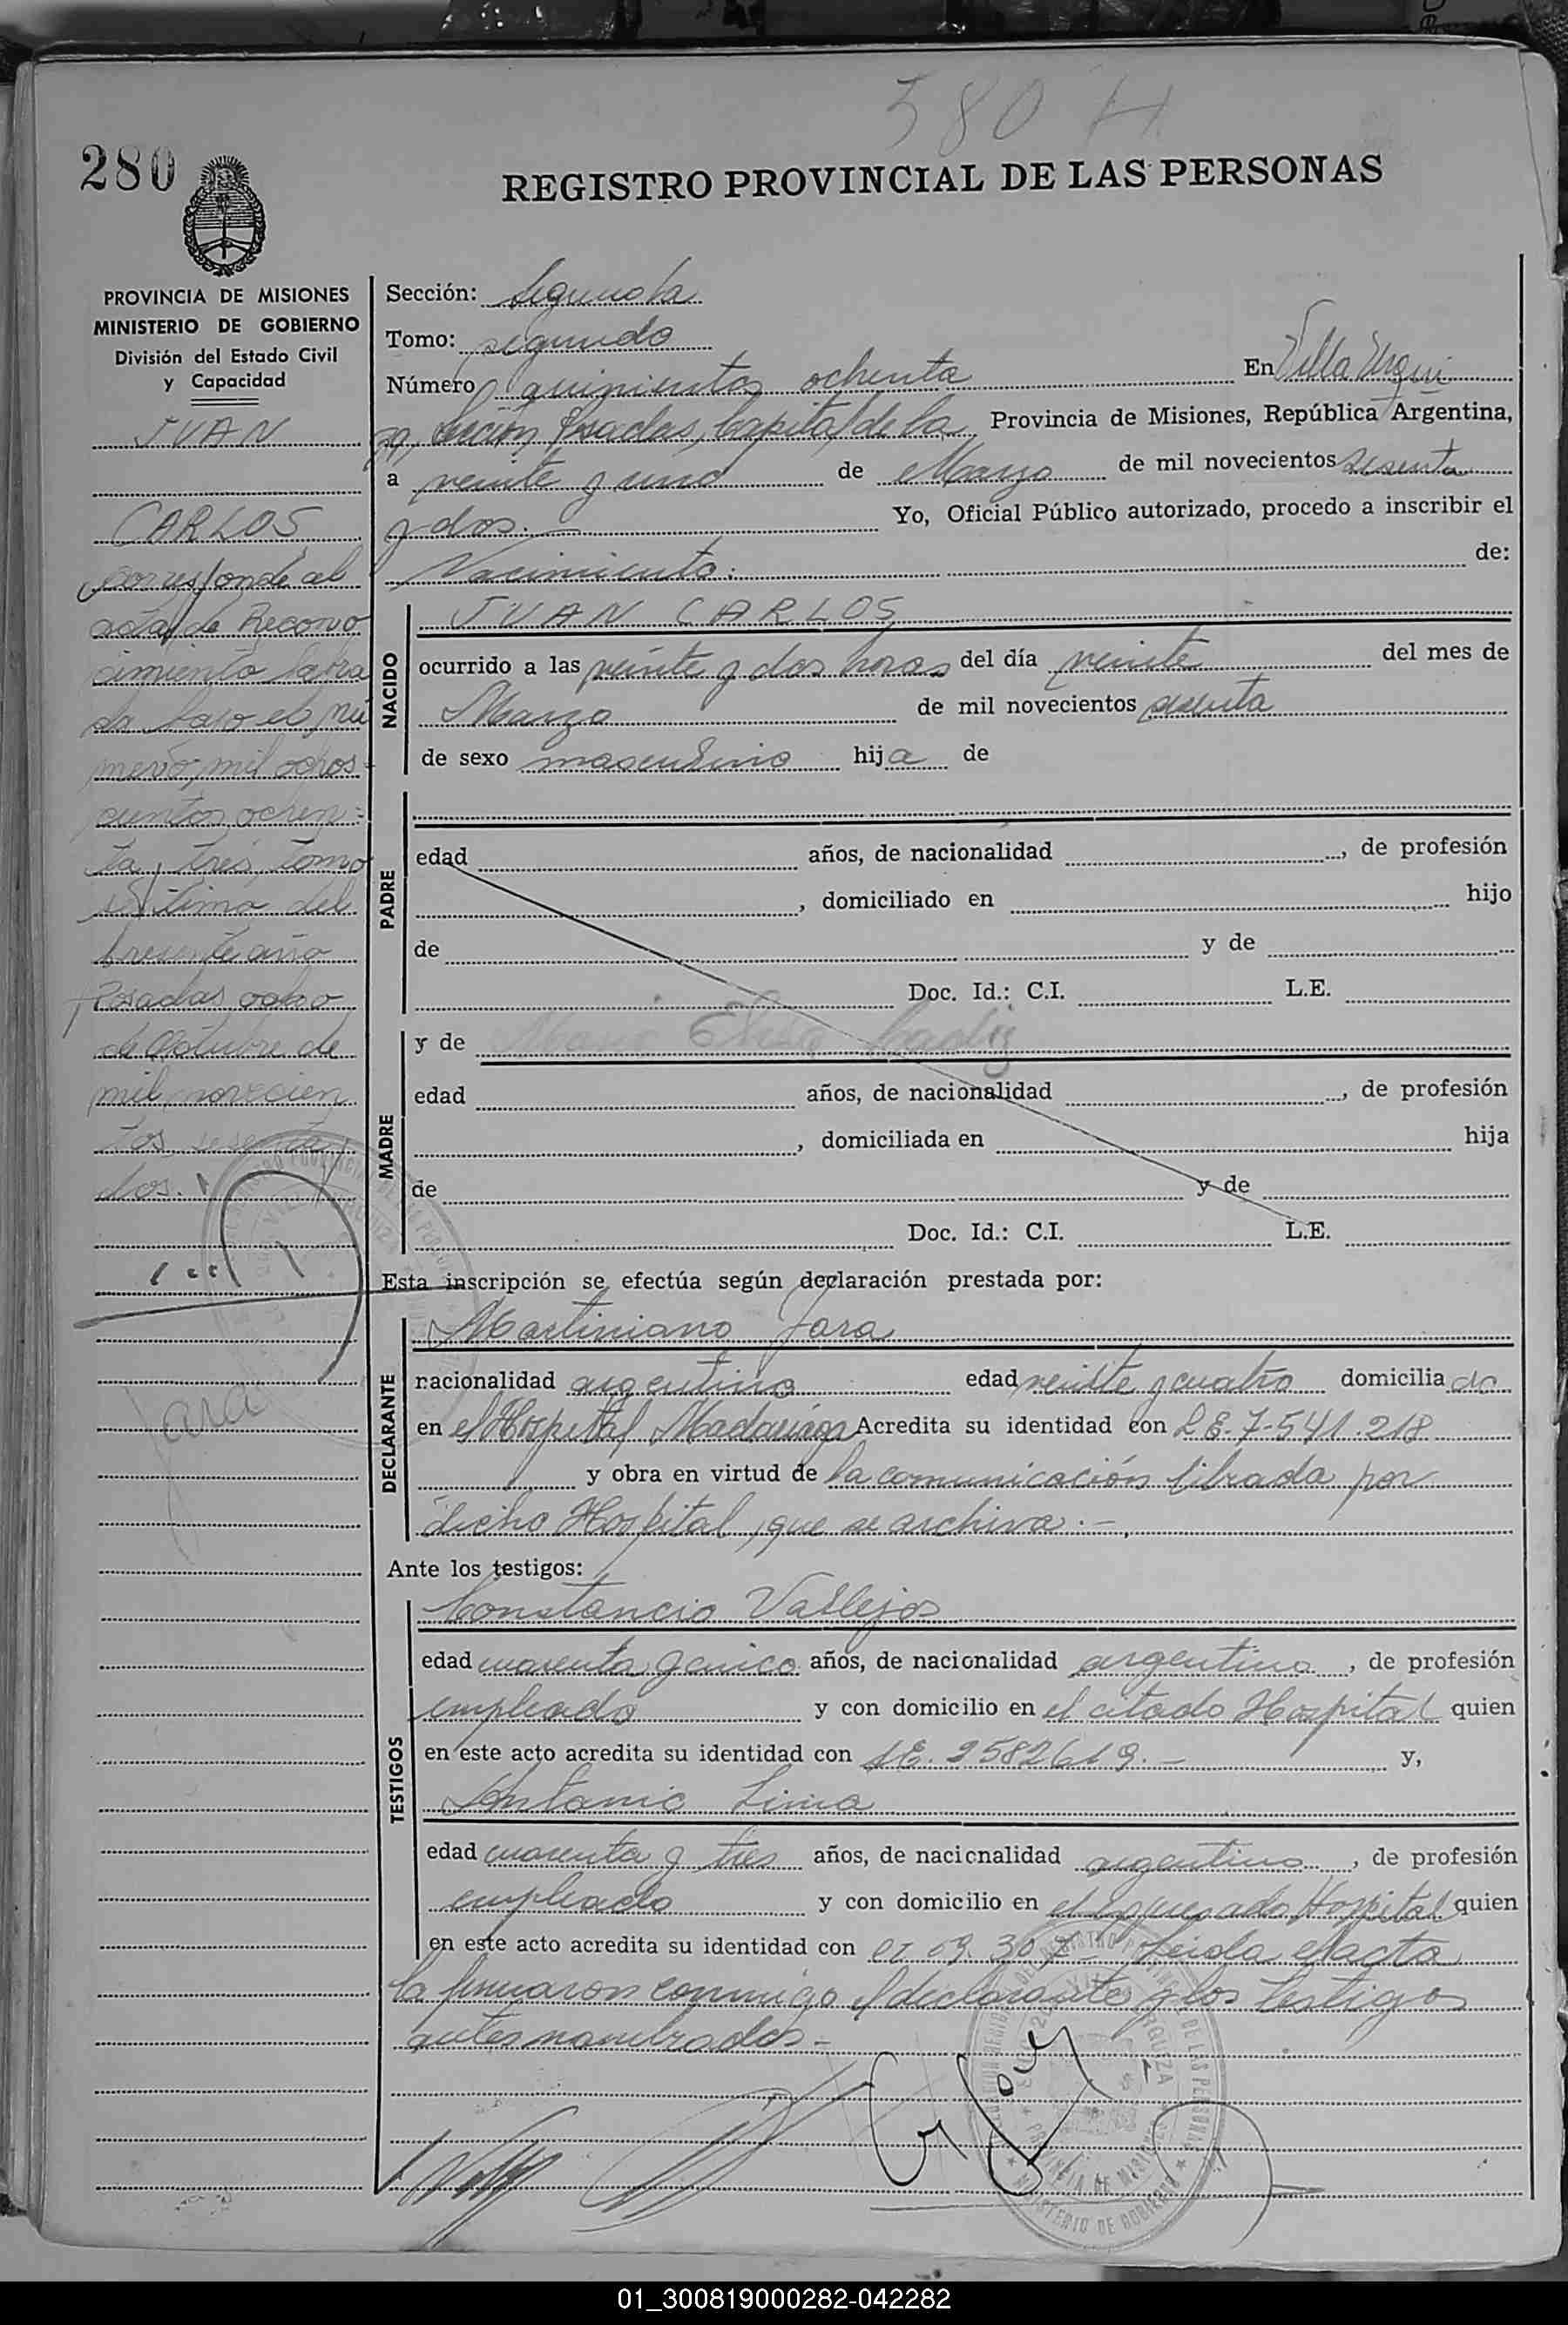 580 H
280
REGISTRO PROVINCIAL DE LAS PERSONAS
PROVINCIA DE MISIONES
MINISTERIO DE GOBIERNO
División del Estado Civil
y Capacidad
JUAN
CARLOS
corresponde al
acta de Recono
cimiento labra
da bajo el nú
mero, mil ochos=
cientos ochen=
ta y tres, tomo
séptimo del
presente año
Posadas ocho
de Octubre de
mil novecien
tos sesenta y
dos.
Jara
Sección: Segunda
Tomo: segundo
Número quinientos ochenta En Villa Urqui
za, Sección Posadas, Capital de la Provincia de Misiones, República Argentina,
a veinte y uno de Marzo de mil novecientos sesenta
y dos.- Yo, Oficial Público autorizado, procedo a inscribir el
Nacimiento: de:
NACIDO
JUAN CARLOS
ocurrido a las veinte y dos horas del día veinte del mes de
Marzo de mil novecientos sesenta
de sexo masculino hija de
PADRE
edad años, de nacionalidad , de profesión
, domiciliado en hijo
de y de
Doc. Id.: C.I. L.E.
MADRE
y de Elisa Cadiz
edad años, de nacionalidad , de profesión
, domiciliada en hija
de y de
Doc. Id.: C.I. L.E.
Esta inscripción se efectúa según declaración prestada por:
DECLARANTE
Martiniano Jara
nacionalidad argentino edad veinte y cuatro domiciliado
en el Hospital Madariaga Acredita su identidad con L E. 7-541.218
y obra en virtud de la comunicación librada por
dicho Hospital, que se archiva.-
Ante los testigos:
TESTIGOS
Constancio Vallejos
edad cuarenta y cinco años, de nacionalidad argentino, de profesión
empleado y con domicilio en el citado Hospital quien
en este acto acredita su identidad con LE. 2582619.- y,
Antonio Lima
edad cuarenta y tres años, de nacionalidad argentino, de profesión
empleado y con domicilio en el expresado Hospital quien
en este acto acredita su identidad con Leida el acta
la firmaron conmigo el declarante y los testigos
antes nombrados-
01_300819000282-042282